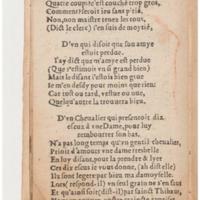 Quatre coups c'est couché trop gros,
Comment seroit leu sans p'ris,
Non, non maistre tenez les tous,
(Dict le clerc) s'en suis de moytié,
D'vn qui disoit que son amye
estoit perdue.
I'ay dict que m'amye est perdue
(Que i'estimois vn si grand bien)
Mais le disant i'estois bien grue
Ie m'en desdy pour moins que rien:
Car tost ou tard, vestue ou nue,
Quelqu'autre la trouuera bien.
D'vn Cheualier qui presentoit dix
escus à vne Dame, pour luy
rembourrer son bas.
N'a pas long temps qu'vn gentil cheualier,
Printt d'amours vne dame tresbelle
En luy disant, pour la prendre & lyer
Ces dix escus ie vous donne, (ah dist elle)
Ilz sont legers par bieu ma damoyselle,
respond-il) vn seul grain ne s'en faut
Et qu'ainsi soit (dit-il) par sainct Thibaut,